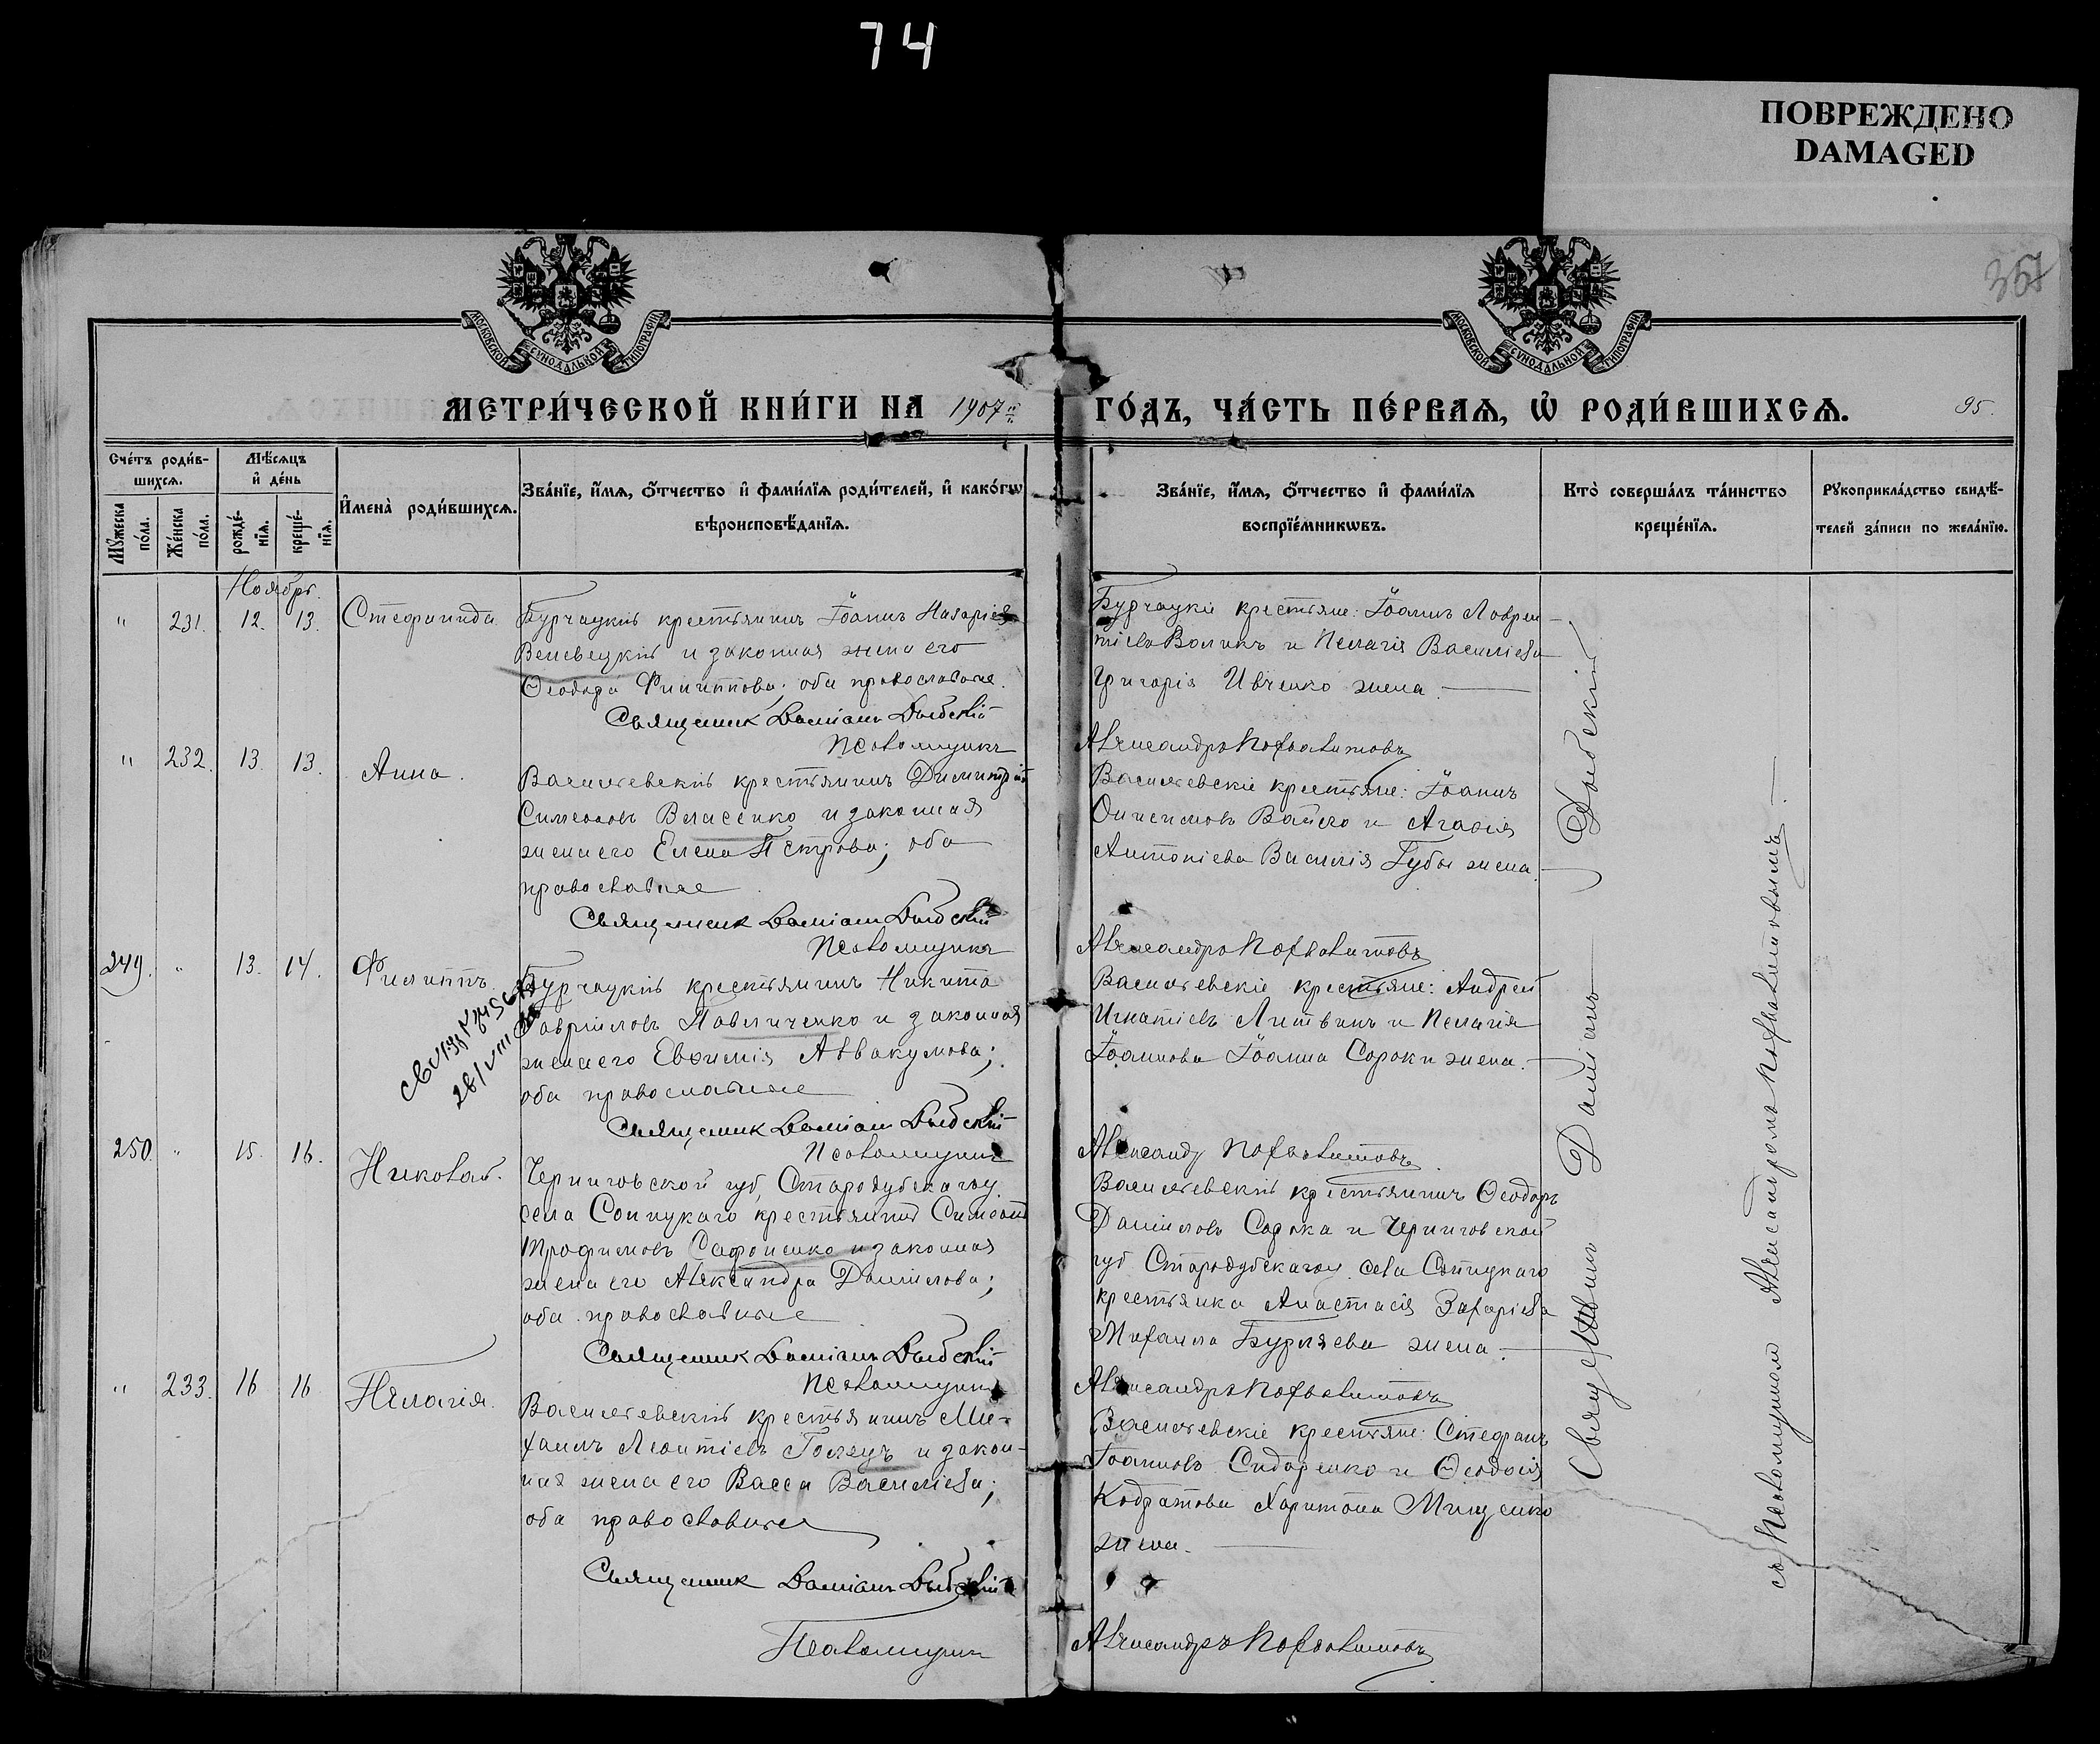 74
ПОВРЕЖДЕНО
DAMAGED
357
МОСКОВСКОЙ СѴНОДАЛЬНОЙ ТИПОГРАФІИ
МОСКОВСКОЙ СѴНОДАЛЬНОЙ ТИПОГРАФІИ
МЕТРИ́ЧЕСКОЙ КНИ́ГИ НА 1907й ГО́ДЪ, ЧА́СТЬ ПЕ́РВАѦ, Ѡ҆ РОДИ́ВШИХСѦ. 95.
Сче́тъ роди́в-
шихсѧ.
Мѣ́сѧцъ
и҆ де́нь
Мꙋ́жеска
по́ла.
Же́нска
по́ла.
рожде́-
нїѧ.
креще́-
нїѧ.
И҆мена̀ роди́вшихсѧ.
Зва́нїе, и҆́мѧ, ѻ҆́тчество и҆ фами́лїѧ роди́телей, и҆ како́гѡ
вѣроисповѣ́данїѧ.
Зва́нїе, и҆́мѧ, ѻ҆́тчество и҆ фами́лїѧ
воспрїе́мникѡвъ.
Кто̀ соверша́лъ та́инство
креще́нїѧ.
Рꙋкоприкла́дство свидѣ́-
телей за́писи по жела́нїю.
Ноябрь.
" 231. 12. 13. Стефанида
Бурчацкій крестьянинъ Іоаннъ Назаріев
Веневецкій и законная жена его
Ѳеодора Филиппова; оба православные.
Священник Даміанъ Дыбскій
Псаломщикъ
Бурчацкіе крестьяне: Іоаннъ Лаврен-
тіевъ Воликъ и Пелагія Василіева
Григорія Ивченко жена.
Александръ Похвалитовъ
" 232. 13. 13. Анна.
Васильевскій крестьянинъ Димитрій
Симеоновъ Власенко и законная
жена его Елена Петрова; оба
православные
Священник Даміанъ Дыбскій
Псаломщикъ
Васильевскіе крестьяне: Іоаннъ
Онисимовъ Вайло и Агафія
Антоніева Василія Губы жена.
Александръ Похвалитовъ
249. " 13. 14. Филиппъ.
Бурчацкій крестьянинъ Никита
Гавріиловъ Павличенко и законная
жена его Евфимія Аввакумова;
оба православные
Священник Даміанъ Дыбскій
Псаломщикъ
Васильевскіе крестьяне: Андрей
Игнатіевъ Литвинъ и Пелагія
Іоаннова Іоанна Сороки жена.
Александръ Похвалитовъ
250. " 15. 16. Николай.
Черниговской губ, Стародубскаго у.
села Соницкаго крестьянинъ Симеонъ
Трофимовъ Сафоненко и законная
жена его Александра Даніилова;
оба православные
Священник Даміанъ Дыбскій
Псаломщикъ
Васильевскій крестьянинъ Ѳеодоръ
Даніиловъ Сорока и Черниговской
губ Стародубскаго у. села
крестьянка Анастасія Захаріева
Михаила Бурляева жена.
Александръ Похвалитовъ
" 233. 16 16 Пелагія.
Васильевскій крестьянинъ Ми-
хаилъ Леонтіевъ Голецъ и закон-
ная жена его Васса Василіева;
оба православные
Священник Даміанъ Дыбскій
Псаломщикъ
Васильевскіе крестьяне: Стефанъ
Іоанновъ Сидоренко и Ѳеодосія
Кодратова Харитона Мищенко
жена.
Александръ Похвалитовъ
Священникъ Даміанъ Дыбскій
съ Псаломщикомъ Александромъ Похвалитовымъ